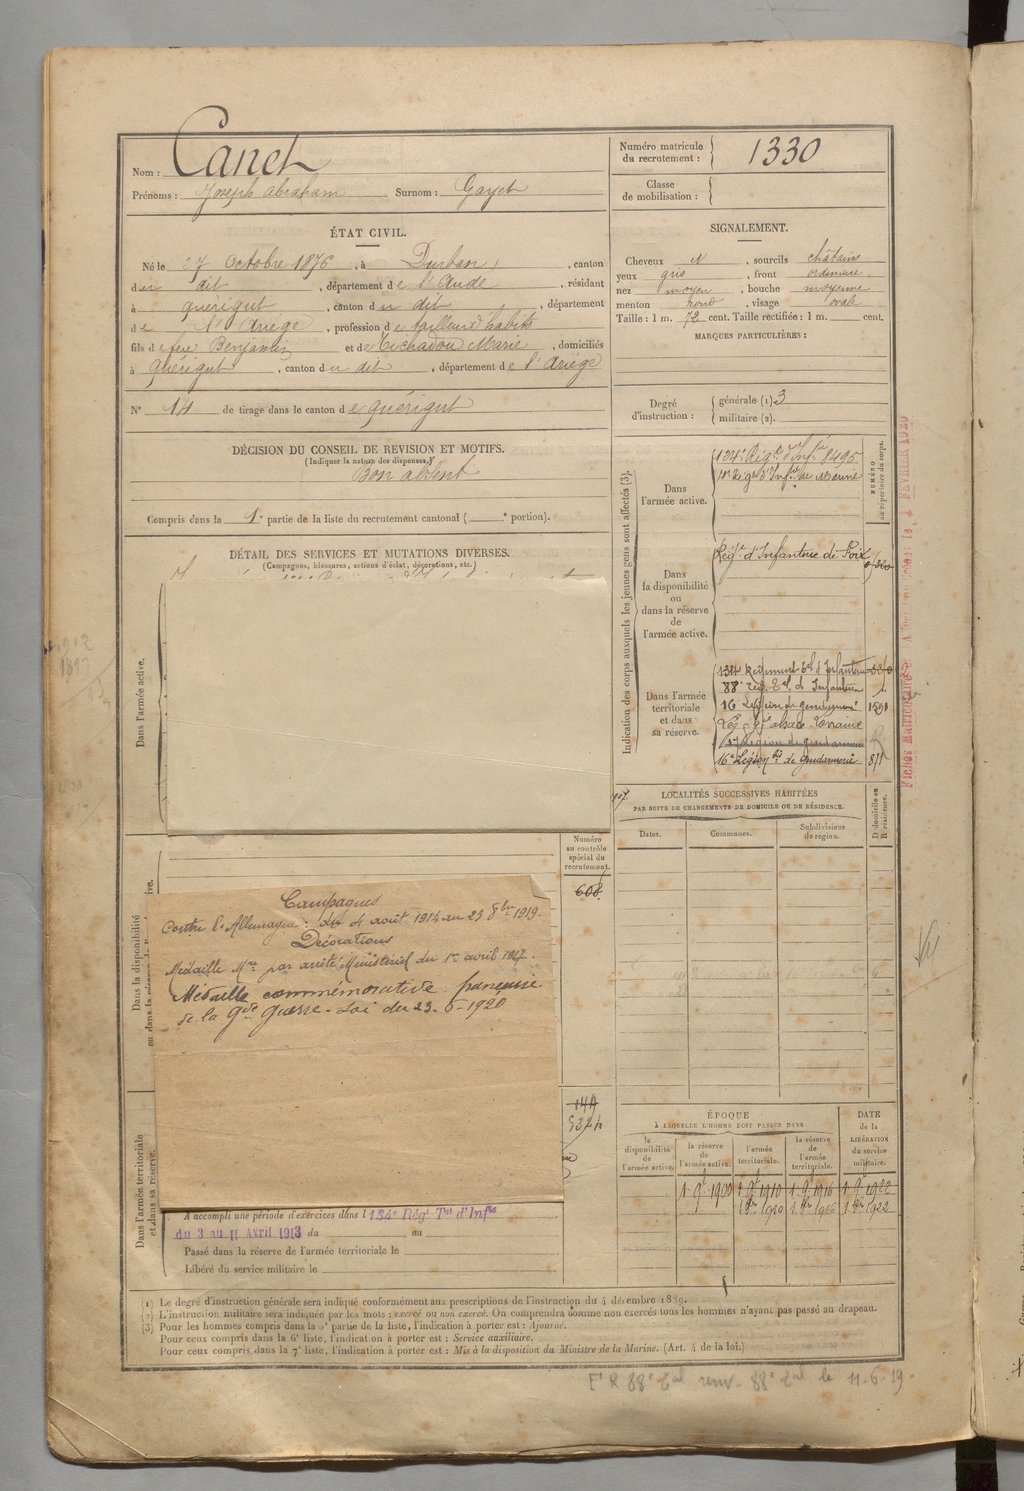 Nom : Canet
Prénoms : Joseph Abraham Surnom : Gayet
Numéro matricule du recrutement : 1330
Classe de mobilisation :
ÉTAT CIVIL.
Né le 27 Octobre 1876, à Durban, canton
du dit, département de l'Aude, résidant
à quérigut, canton du dit, département
de l'Ariège, profession de tailleur d'habits
fils de feu Benjamin et de Tichadou Marie, domiciliés
à quérigut, canton du dit, département de l'Ariège
N° 14 de tirage dans le canton de quérigut
SIGNALEMENT.
Cheveux N, sourcils châtains
yeux gris, front ordinaire
nez moyen, bouche moyenne
menton rond, visage ovale
Taille : 1 m. 72 cent. Taille rectifiée : 1 m. cent.
MARQUES PARTICULIÈRES :
Degré d'instruction : générale (1) 3
militaire (2).
DÉCISION DU CONSEIL DE REVISION ET MOTIFS.
(Indiquer la nature des dispenses.)
Bon absent
Compris dans la 1e partie de la liste du recrutement cantonal ( e portion).
DÉTAIL DES SERVICES ET MUTATIONS DIVERSES.
(Campagnes, blessures, actions d'éclat, décorations, etc.)
Dans l'armée active.
Dans la disponibilité
ou dans la réserve de l'armée active.
Dans l'armée territoriale
et dans sa réserve.
Numéro
au contrôle
spécial du
recrutement.
608
144
Campagnes
Contre l'Allemagne : du 4 août 1914 au 23 8bre 1919.
Décorations
Médaille Mre par arrêté Ministériel du 1er avril 1917.
Médaille commémorative française
de la Gde guerre - Loi du 23-6-1920
A accompli une période d'exercices dans l 134e Régt Tal d'Infie
du 3 au 11 Avril 1913 du au
Passé dans la réserve de l'armée territoriale le
Libéré du service militaire le
Indication des corps auxquels les jeunes gens sont affectés (3).
NUMÉRO
au répertoire du corps.
Dans
l'armée active.
124e Régt d'Infie 8495
4e Régt d'Infie de Marine
Dans
la disponibilité
ou
dans la réserve
de
l'armée active.
Régt d'Infanterie de Foix
Dans l'armée
territoriale
et dans
sa réserve.
134 Régiment Tal d'Infanterie
88e Reg. Tal d'Infanterie
16 Légion de gendarmerie 1591
Lég. d'alsace-Lorraine
16e Légion bis de Gendarmerie 871
LOCALITÉS SUCCESSIVES HABITÉES
PAR SUITE DE CHANGEMENTS DE DOMICILE OU DE RÉSIDENCE.
Dates. Communes. Subdivisions de région. D domicile ou R résidence.
ÉPOQUE
À LAQUELLE L'HOMME DOIT PASSER DANS
DATE
de la
LIBÉRATION
du service
militaire.
la disponibilité de l'armée active. la réserve de l'armée active. l'armée territoriale. la réserve de l'armée territoriale.
1 9e 1900 1 9e 1910 1 9e 1916 1 9e 1922
1 8re 1910 1 8re 1916 1 8re 1922
(1) Le degré d'instruction générale sera indiqué conformément aux prescriptions de l'instruction du 4 décembre 1889.
(2) L'instruction militaire sera indiquée par les mots : exercé ou non exercé. On comprendra comme non exercés tous les hommes n'ayant pas passé au drapeau.
(3) Pour les hommes compris dans la 5e partie de la liste, l'indication à porter est : Ajourné.
Pour ceux compris dans la 6e liste, l'indication à porter est : Service auxiliaire.
Pour ceux compris dans la 7e liste, l'indication à porter est : Mis à la disposition du Ministre de la Marine. (Art. 4 de la loi.)
88e Tal le 11-6-19.